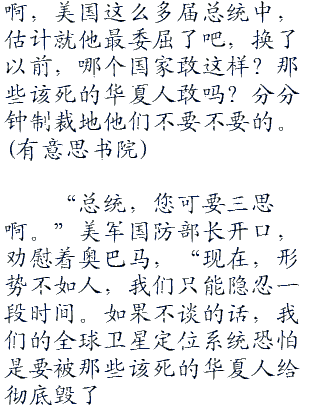 啊，美国这么多届总统中，
估计就他最委屈了吧，换了
以前，哪个国家敢这样？那
些该死的华夏人敢吗？分分
钟制裁地他们不要不要的。
(有意思书院)
“总统，您可要三思
啊。”美军国防部长开口，
劝慰着奥巴马，“现在，形
势不如人，我们只能隐忍一
段时间。如果不谈的话，我
们的全球卫星定位系统恐怕
是要被那些该死的华夏人给
彻底毁了